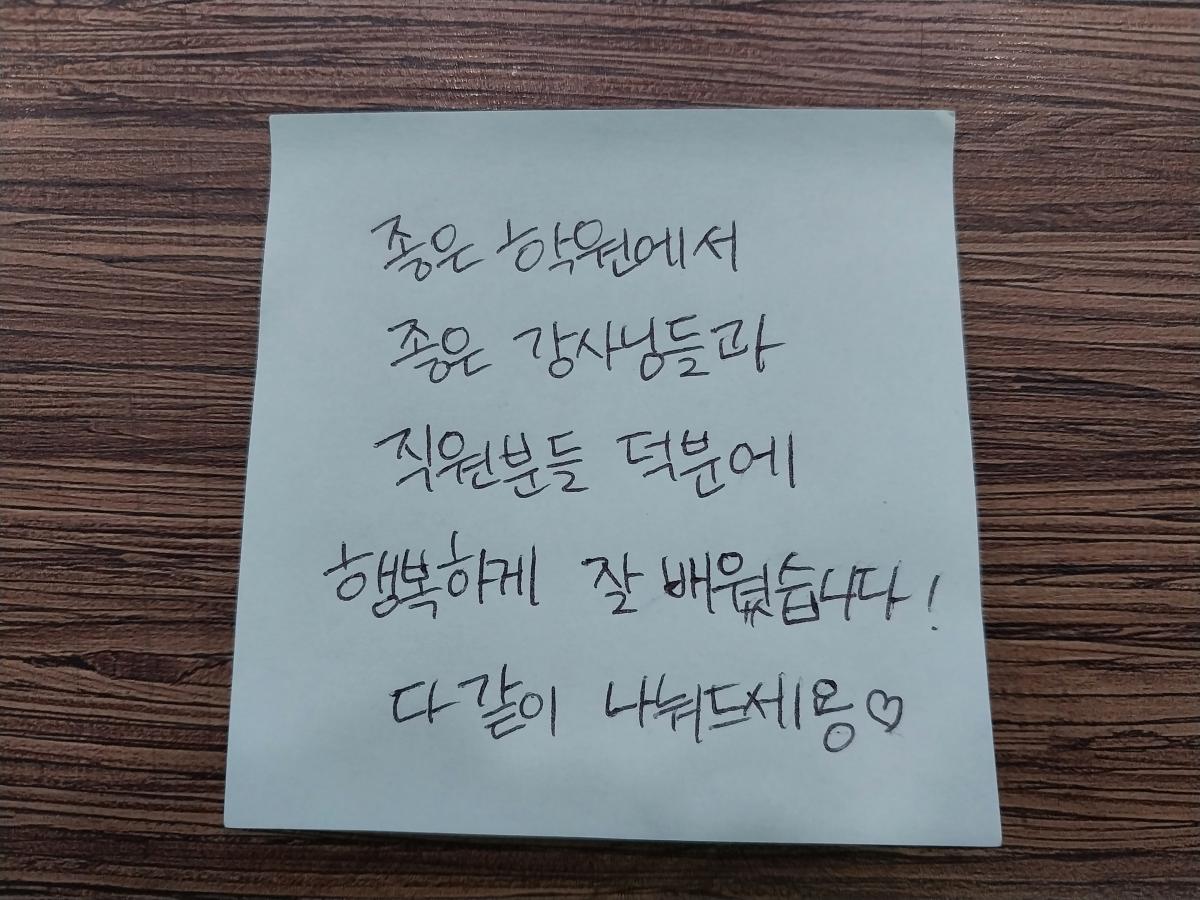 좋은 학원에서
좋은 강사님들과
직원분들 덕분에
행복하게 잘 배웠습니다!
다같이 나눠드세용♡